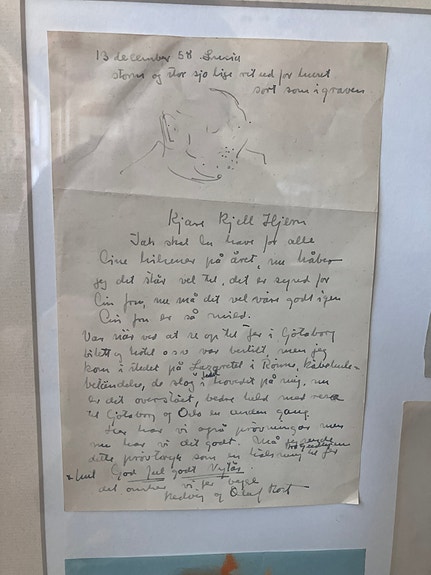 13 december 58 Lucia
storm og stor sjø lige ret ud for huset
sort som i graven
Kjære Kjell Hjern
Tak skal du have for alle
Dine hilsener på året, nu håber
jeg det står vel til, det er synd for
Din fru, nu må det vel være godt igen
Din fru er så
Var nær ved at re op til Jer i Göteborg
bilett og hotel osv var bestilt men jeg
kom i stedet på Lazarettet i Rönne,
de slog hovedet på mig, nu
er det overstået, bedre held med
til Göteborg og Oslo en anden gang.
Her har vi også prøvninger men
nu har vi det godt. Må
dette prøvetryk som en hilsning til Jer
God Jul godt Nytår
det ønsker vi Jer
Hedvig og Oluf Høst